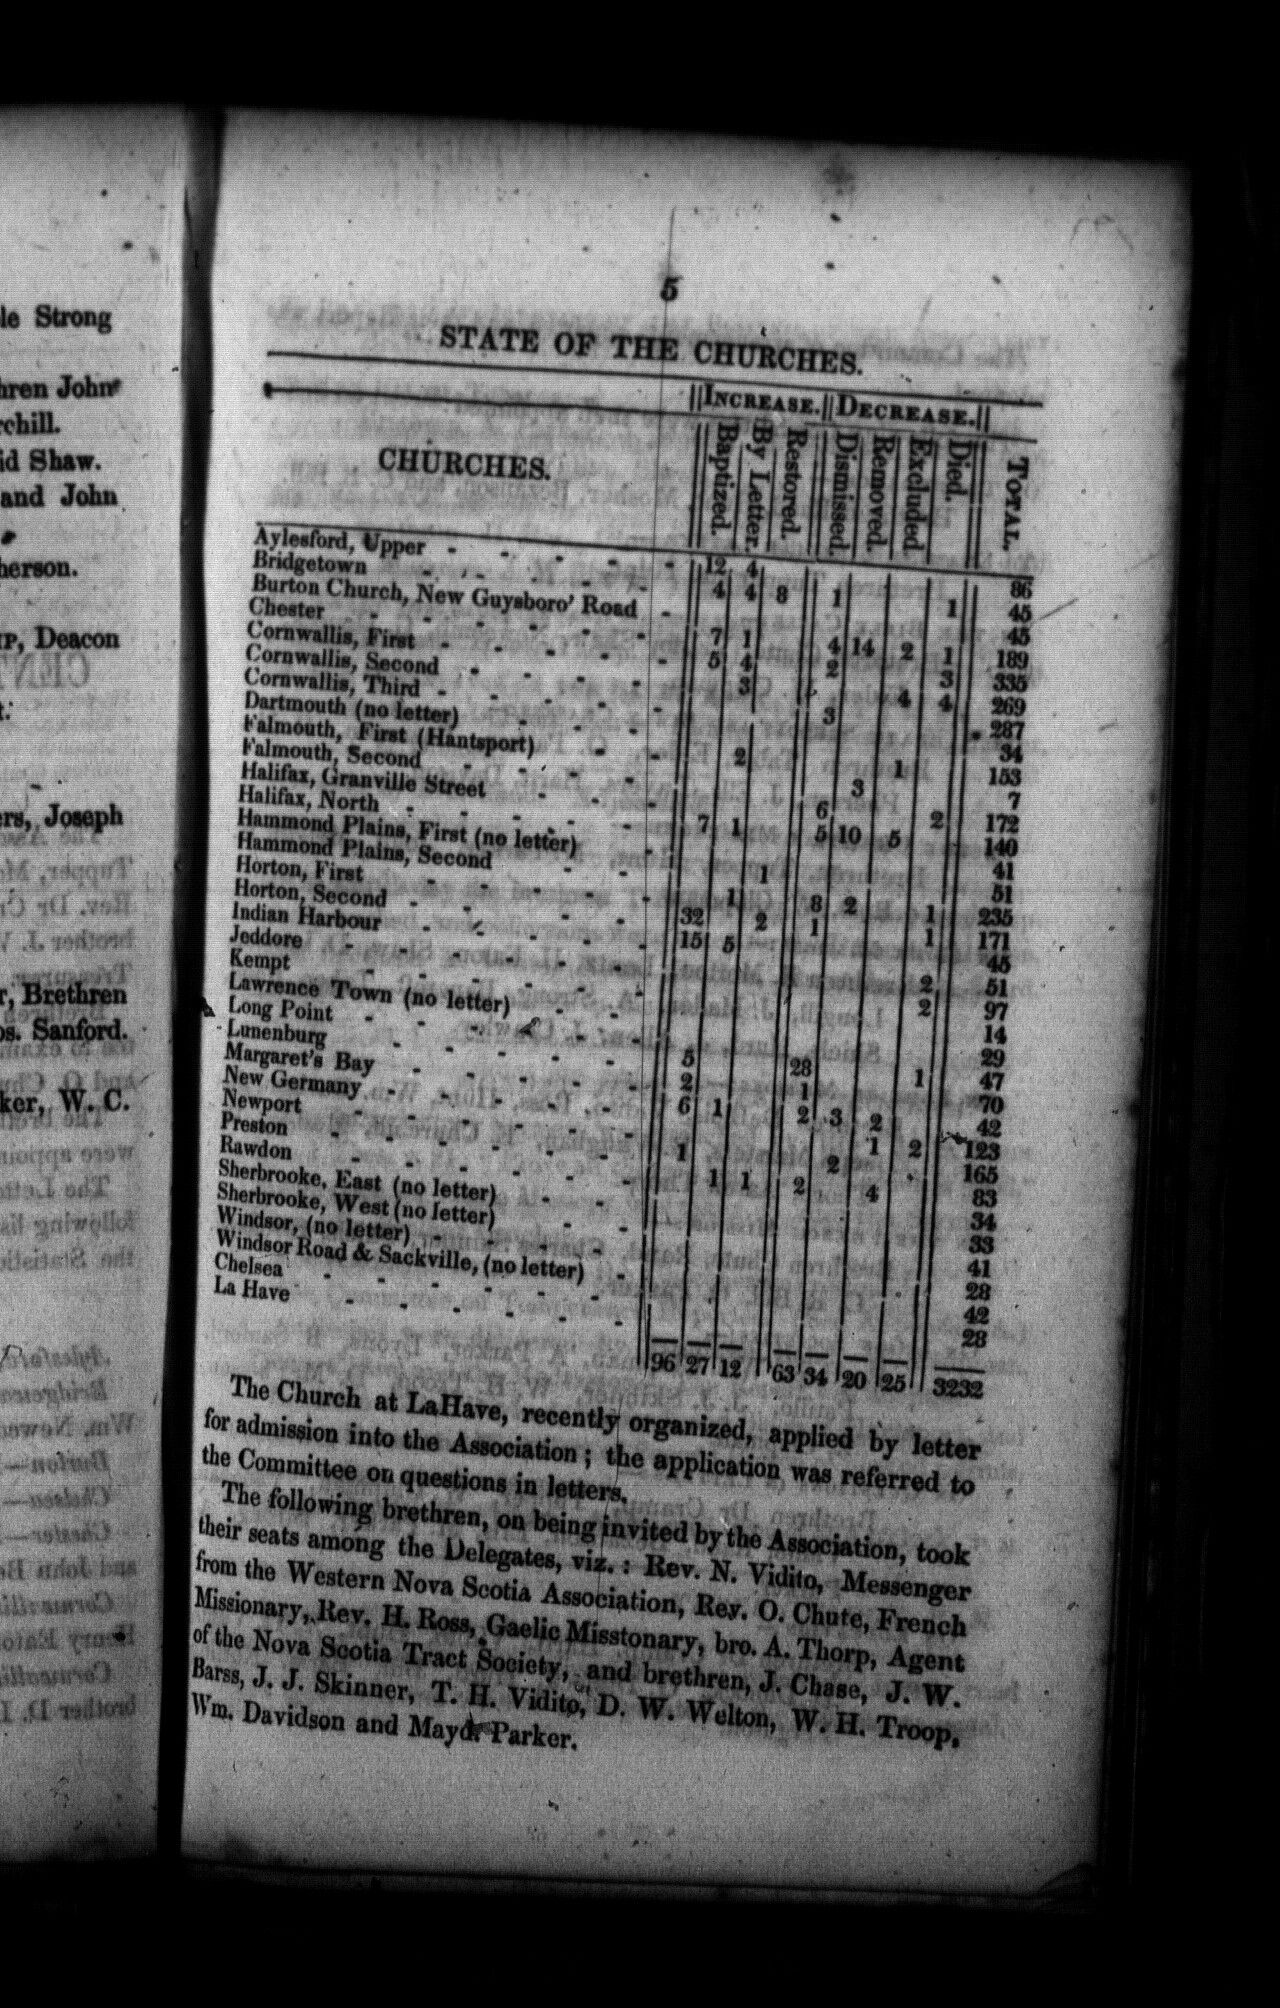 le Strong
hren John
rchill.
id Shaw.
and John
herson.
rp, Deacon
ers, Joseph
r, Brethren
os. Sanford.
ker, W. C.
5
STATE OF THE CHURCHES.
INCREASE. DECREASE.
CHURCHES. Baptized. By Letter. Restored. Dismissed. Removed. Excluded. Died. TOTAL.
Aylesford, Upper - - - - - 12 4 86
Bridgetown - - - - - 4 4 8 1 1 45
Burton Church, New Guysboro' Road - 45
Chester - - - - - - 7 1 4 14 2 1 189
Cornwallis, First - - - - - 5 4 2 3 335
Cornwallis, Second - - - - 3 4 4 269
Cornwallis, Third - - - - - 3 287
Dartmouth (no letter) - - - - 34
Falmouth, First (Hantsport) - - - 2 1 153
Falmouth, Second - - - - 3 7
Halifax, Granville Street - - - 6 2 172
Halifax, North - - - - - 7 1 5 10 5 140
Hammond Plains, First (no letter) - 41
Hammond Plains, Second - - - 1 51
Horton, First - - - - - 1 8 2 1 235
Horton, Second - - - - - 32 2 1 1 171
Indian Harbour - - - - - 15 5 45
Jeddore - - - - - - 2 51
Kempt - - - - - - 2 97
Lawrence Town (no letter) - - - 14
Long Point - - - - - 29
Lunenburg - - - - - 5 28 1 47
Margaret's Bay - - - - - 2 1 70
New Germany - - - - - 6 1 2 3 2 42
Newport - - - - - - 1 2 123
Preston - - - - - - 1 2 165
Rawdon - - - - - - 1 1 2 4 83
Sherbrooke, East (no letter) - - - 34
Sherbrooke, West (no letter) - - 33
Windsor, (no letter) - - - - 41
Windsor Road & Sackville, (no letter) - 28
Chelsea - - - - - - 42
La Have - - - - - - 28
96 27 12 63 34 20 25 3232
The Church at LaHave, recently organized, applied by letter
for admission into the Association; the application was referred to
the Committee on questions in letters.
The following brethren, on being invited by the Association, took
their seats among the Delegates, viz.: Rev. N. Vidito, Messenger
from the Western Nova Scotia Association, Rev. O. Chute, French
Missionary, Rev. H. Ross, Gaelic Misstonary, bro. A. Thorp, Agent
of the Nova Scotia Tract Society, and brethren, J. Chase, J. W.
Barss, J. J. Skinner, T. H. Vidito, D. W. Welton, W. H. Troop,
Wm. Davidson and Mayd. Parker.